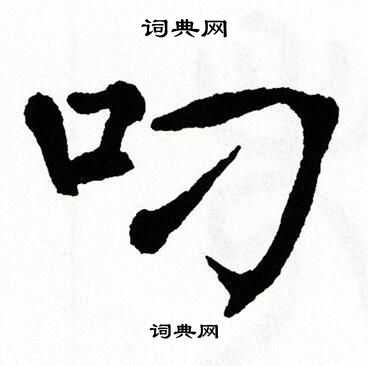 词典网
叼
词典网